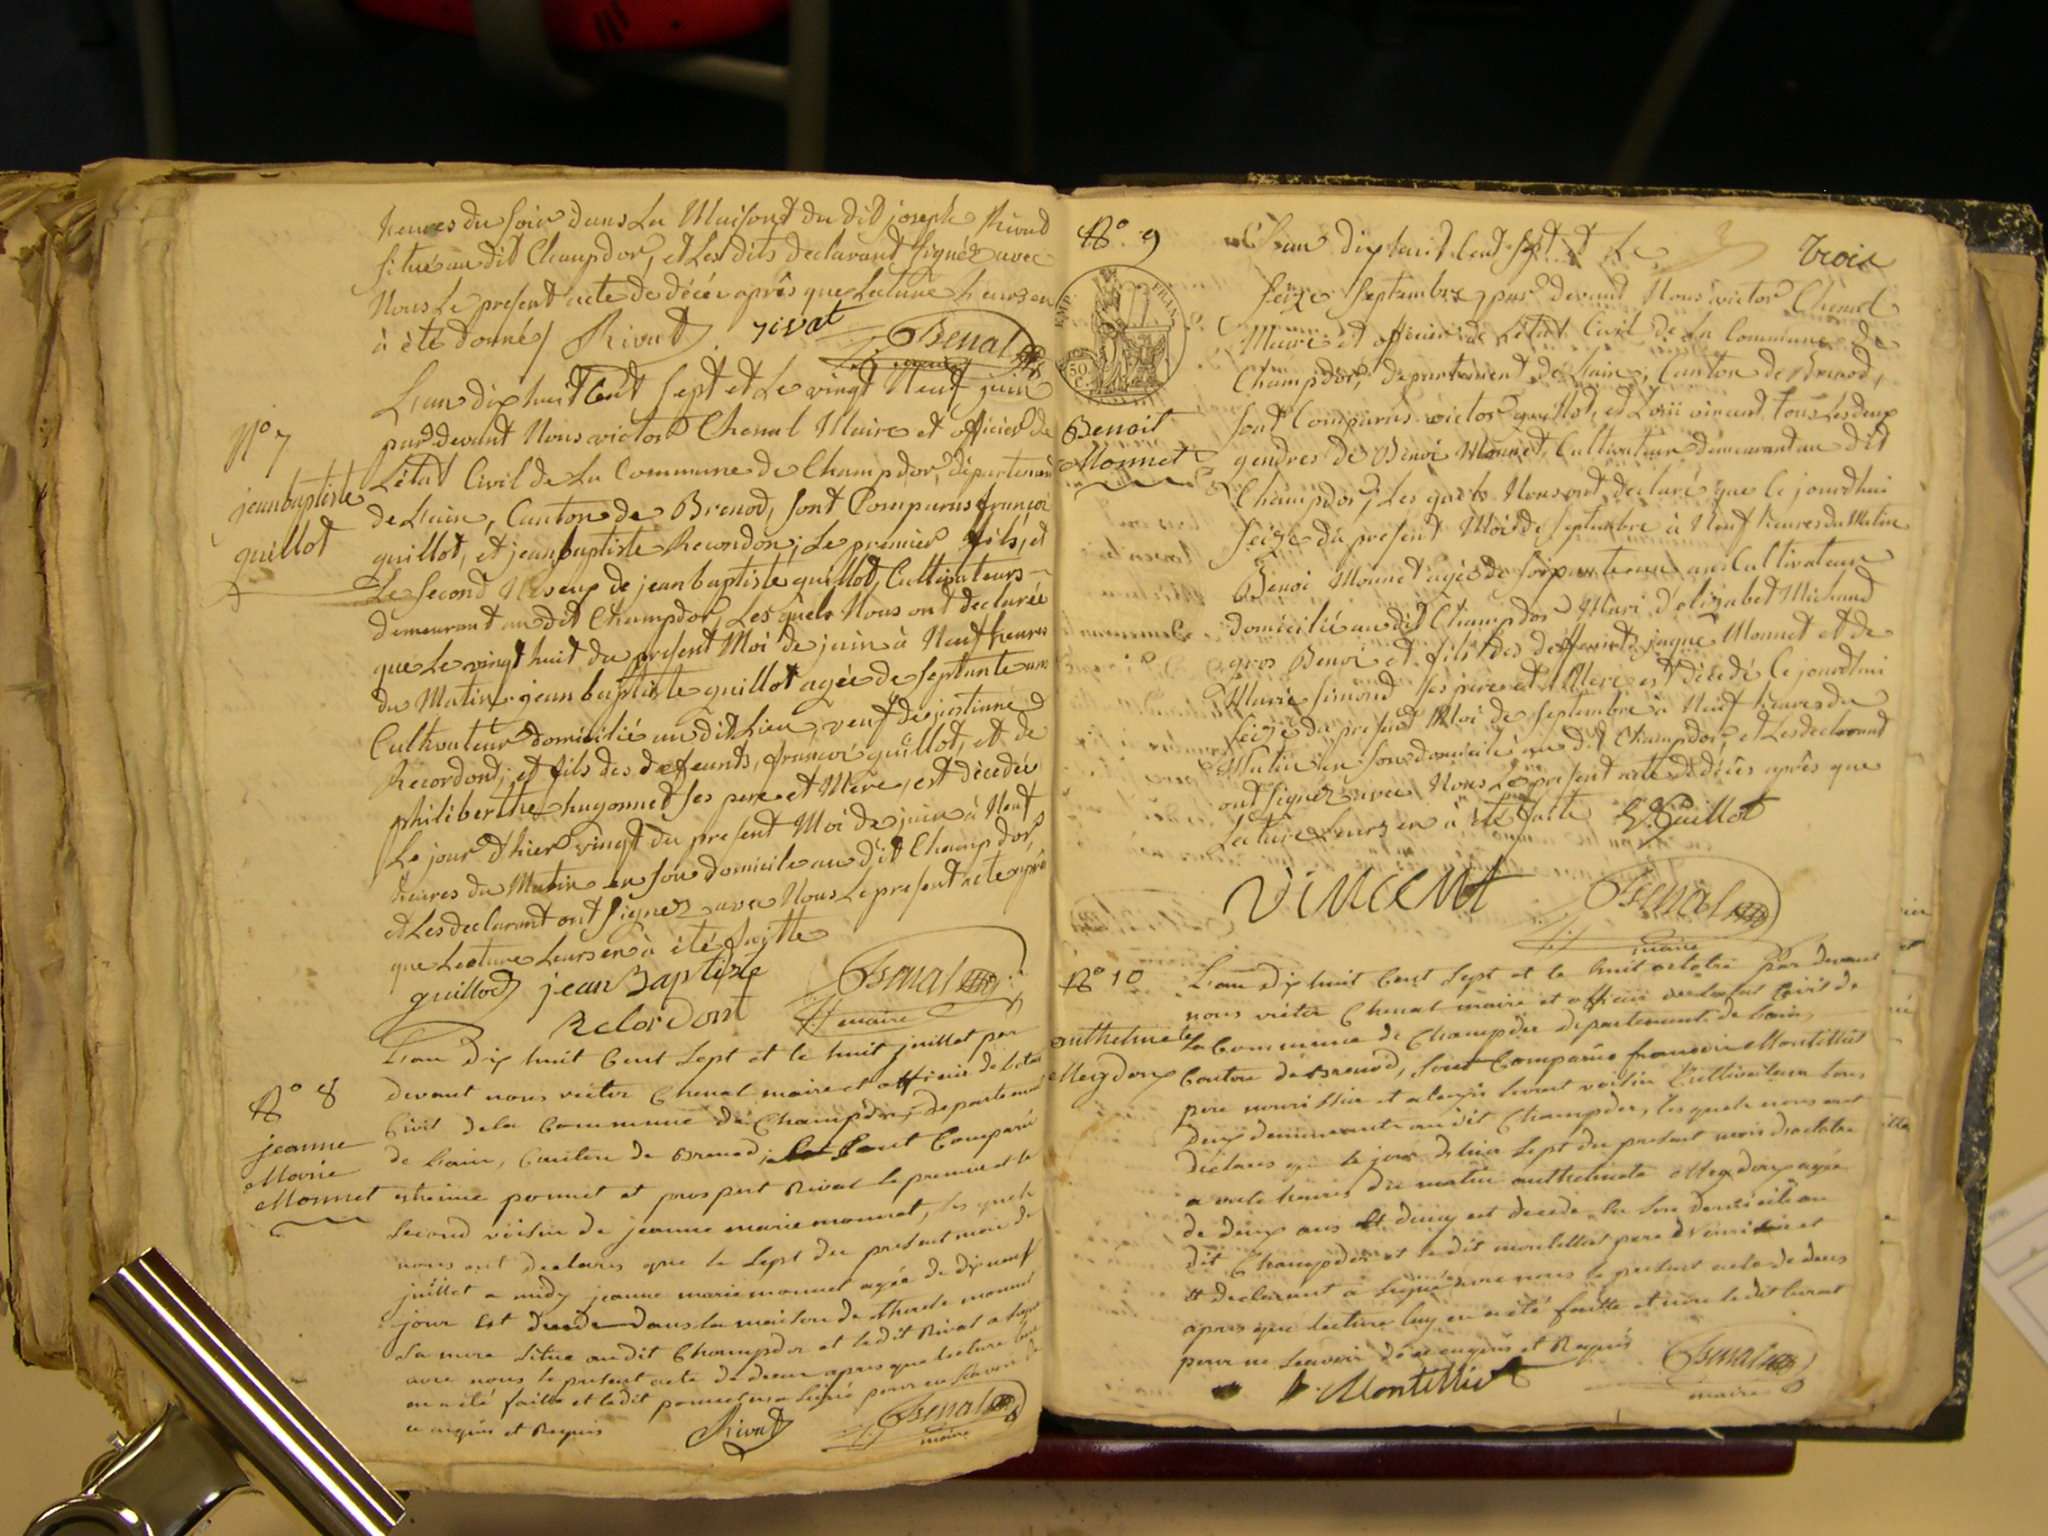 heures du soir dans La Maisont du dit joseph Rivad
situé au dit Champdor, et Les dits declarant signéz avec
Nous Le present acte de décéz après que Lecture heurs en
à été donné / Rivat rivat Chenal
maire
N° 7
jean baptiste
guillot
L'an dix huit Cent Sept et Le vingt Neuf juin
par devant Nous victor Chenal Maire et officier de
L'état Civil de La Commune de Champdor, departement
de L'ain, Canton de Brenod, sont Comparus françoi
guillot, et jean baptiste Recondon; Le premier fils, et
Le second Neveux de jean baptiste guillot, Cultivateurs
demeurant au dit Champdor, Les quels Nous ont declarée
que Le vingt huit du present Moi de juin à Neuf heures
du Matin jean baptiste guillot agée de septante ans
Cultivateur domicilié au dit Lieu, veuf de justinne
Recordont, et fils des deffeunts, françoi guillot, et de
philiberthe hugonnet ses pere et Mère, est décedée
Le jour d'hier vingt du present Moi de juin à Neuf
heures du Matin en son domicile au dit Champdor,
et Les declarant ont signez avec Nous Le present acte aprè
que Lecture Leurs en à été faitte
guillod jean Baptiste Chenal
Recordont maire
N° 8
jeanne
Marie
Monnet
L'an dix huit Cent Sept et le huit juillet par
devant nous victor Chenal maire et officier de letat
Civil de la Commune de Champdor, departement
de Lain, Canton de Brenod, Sont Comparü
ponnet et prospert Rivat le premier et le
Second voisin de jeanne marie monnet, les quels
nous ont declarés que le Sept du present mois de
juillet a midy jeanne marie monnet agée de dix neuf
jour Est decede dans la maison de monnet
Sa mere Situe audit Champdor et ledit Rivat a signé
avec nous le present acte de deces apres que lecture
en a été faitte et ledit ponnet pour ne Savoir
ce enquis et Requis Rivat Chenal
maire
N° 9
Trois
EMP. FRAN.
50 C.
Benoit
Monnet
L'an dix huit Cent sept et Le
seize Septembre par devant Nous victor Chenal
Maire et officier de L'état Civil de La Commune de
Champdor, departement de L'ain, Canton de Brenod,
sont Comparus victor guillot, et Loui vincent tous Les deux
gendres de Benoi Monnet, Cultivateur demeurant au dit
Champdor, Les quels Nous ont declaré que Ce jourdhui
seize du present Moi de Septembre à Neuf heures du Matin
Benoi Monnet agée de soixante ans Cultivateur
domicilié au dit Champdor Mari d'elizabet Michaud
gros Benoi et fils des deffeunts jaque Monnet et de
Marie simond ses pere et Mère est décedé Ce jourdhui
seize du present Moi de septembre à Neuf heures du
Matin en son domicile au dit Champdor, et Les declarant
ont signéz avec Nous Le present acte de décés après que
Lecture Leurs en à été faite V. Guillot
VINCENT Chenal
maire
N° 10
anthelmete
Meydonx
L'an dix huit Cent Sept et le huit octobre par devant
nous victor Chenal maire et officier de letat Civil de
la Commune de Champdor departement de Lain,
Canton de Brenod, Sont Comparüs francois Montillet
pere nourissier et voisin Cultivateur tous
deux demeurants au dit Champdor, les quels nous ont
déclares que le jour dhier Sept du present mois doctobre
a heures du matin anthelmete Meydonx agée
de deux ans est decede en Son domicile au
dit Champdor et le dit montillet pere nourissier et
declarant a signé avec nous le present acte de deces
apres que lecture luy en a été faitte et non ledit
pour ne Scavoir de ce enquis et Requis
f. Montillet Chenal
maire